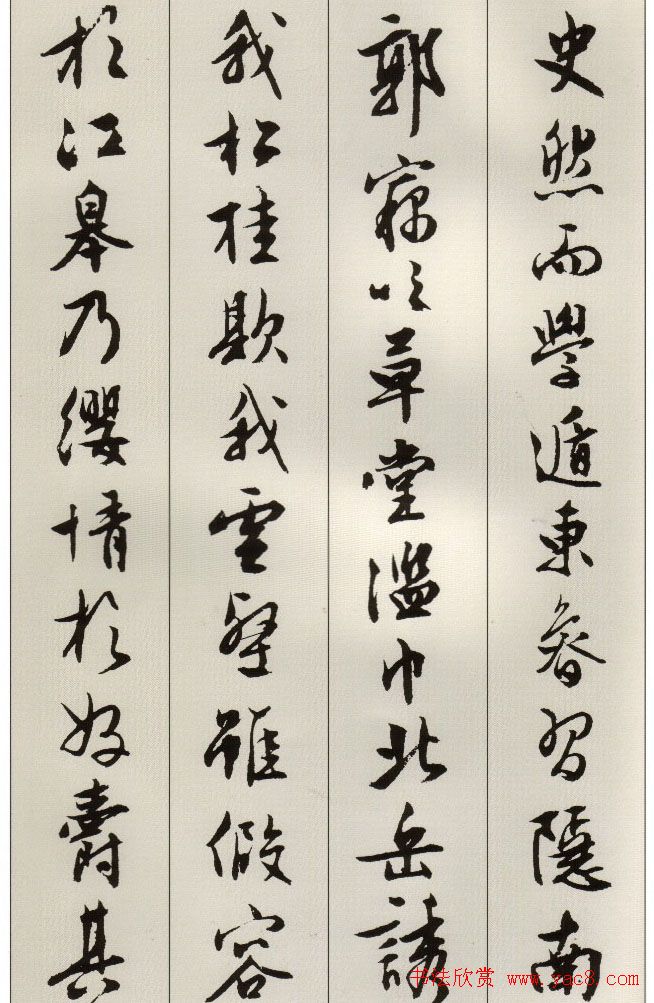 史然而學遁東魯習隱南
郭竊吹草堂濫巾北岳誘
我松桂欺我雲壑雖假容
於江皋乃纓情於好爵其
书法欣赏 www.yac8.com